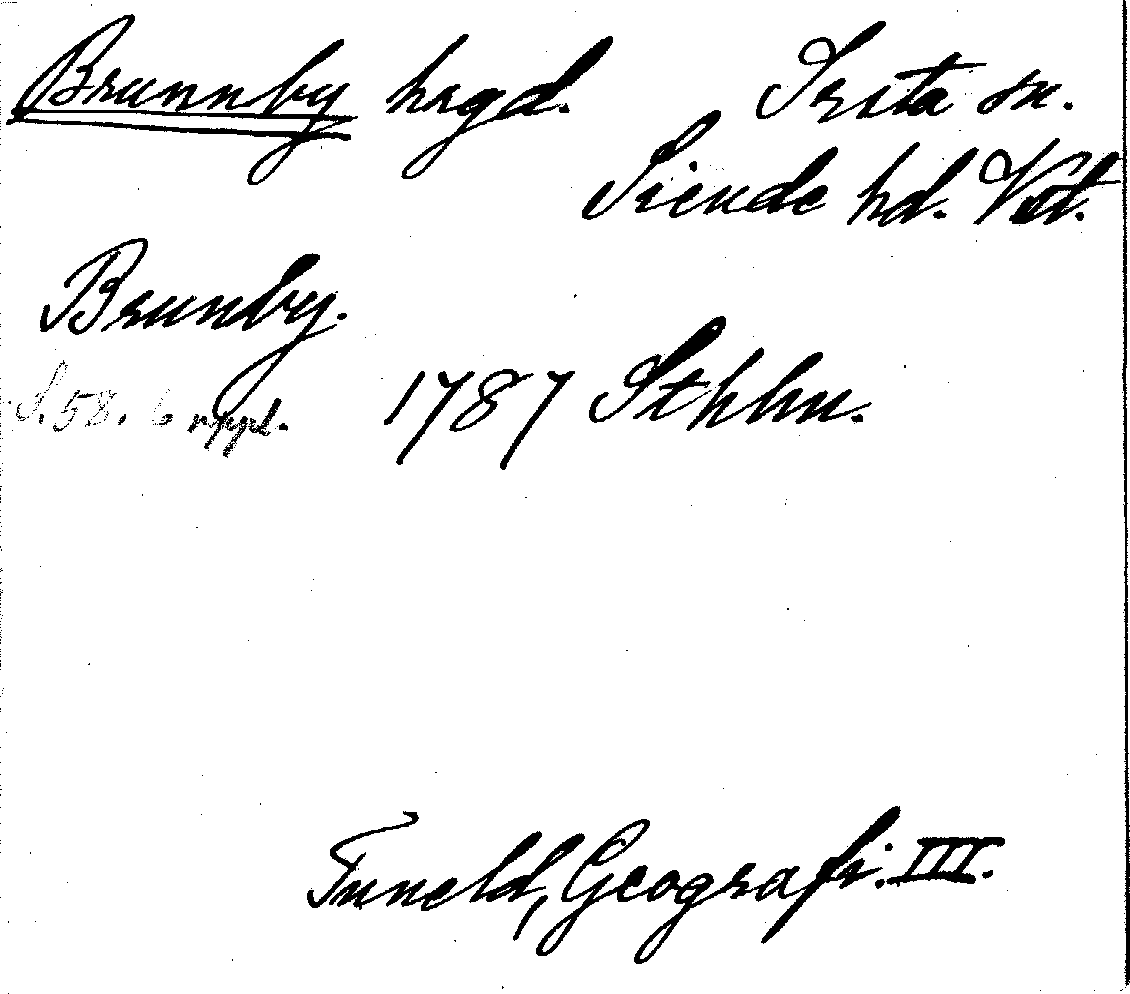 Brunnby hrgd. Irsta sn.
Siende hd. Vstl.
Brunby.
S. 58. 6 uppl. 1787 Sthlm.
Tuneld, Geografi. III.